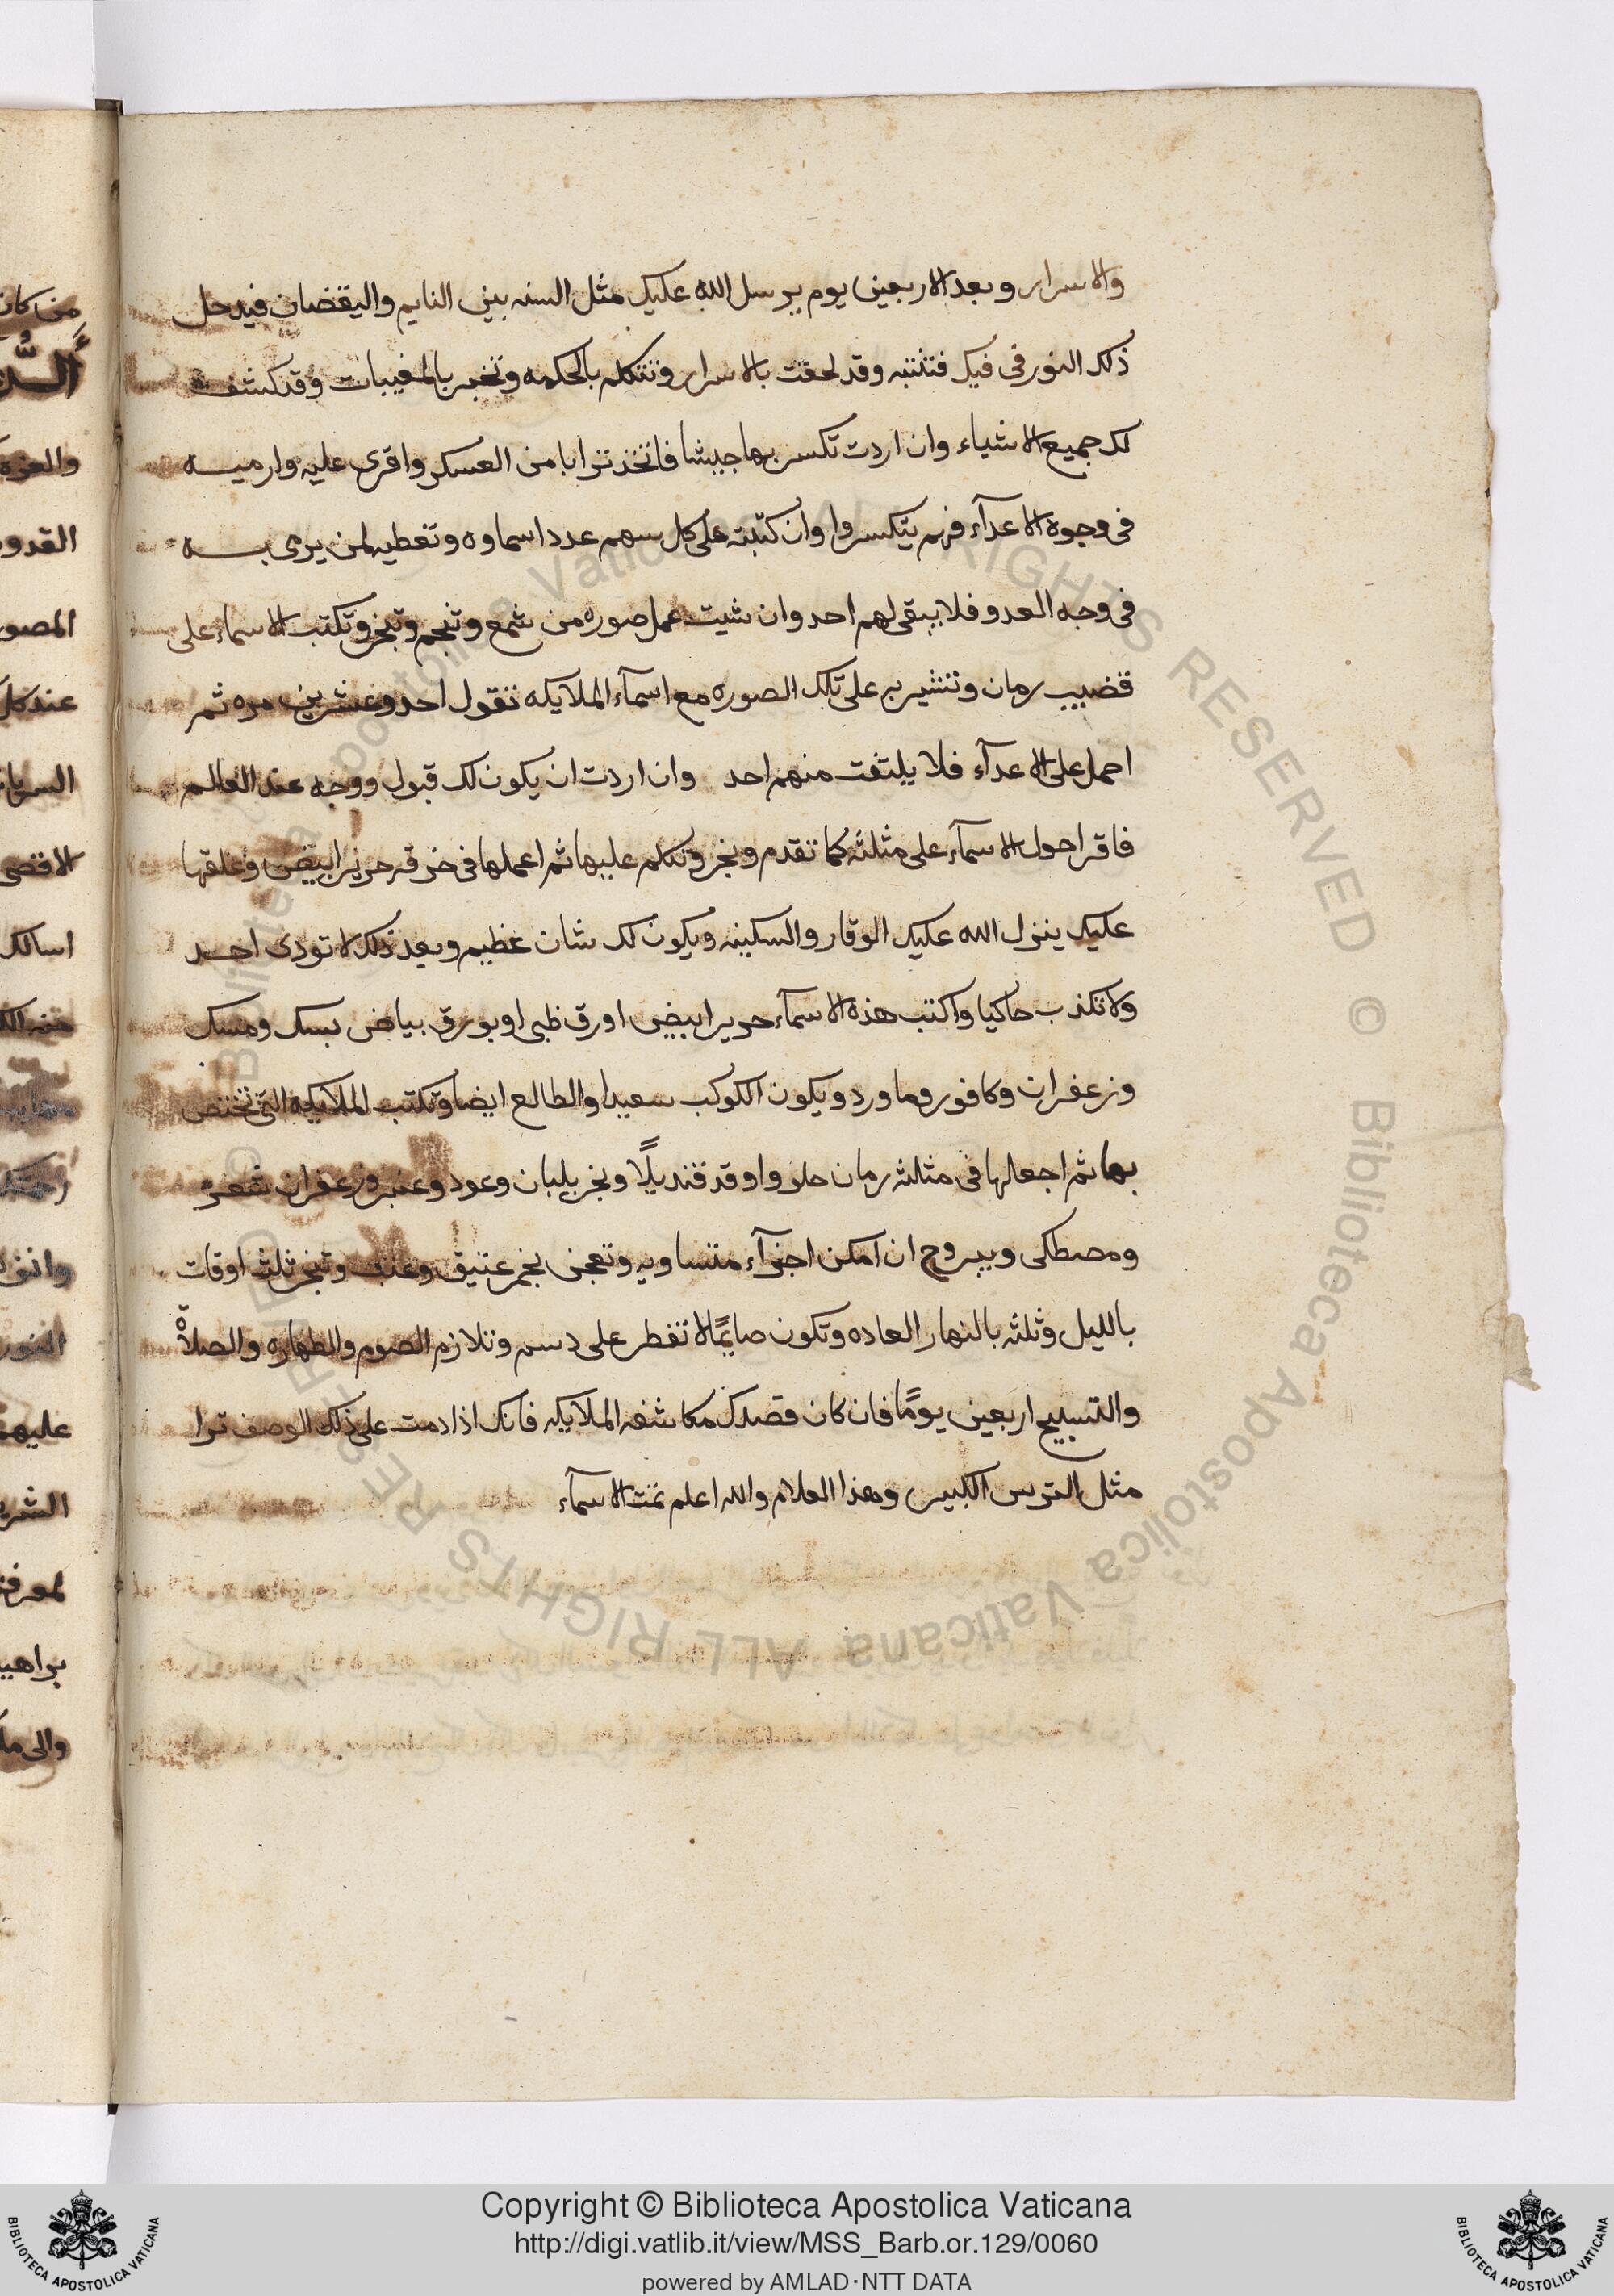 والاسرار وبعد الاربعين يوم يرسل الله عليك مثل السنه بين النايم واليقضان فيدخل
ذلك النور في فيك فتنتبه وقد لحقت بالاسرار وتتكلم بالحكمه وتخبر بالمغيبات وقد كشف
لك جميع الاشياء وان اردت تكسر بها جيشا فاتخذ ترابا من العسكر واقرى عليه وارميه
في وجوه الاعدآء فهم يتكسروا وان كتبته على كل سهم عدد اسماوه وتعطيه لمن يرمى به
في وجه العدو فلا يبقى لهم احد وان شيت عمل صوره من شمع وتنجم وتبخر وتكتب الاسماء على
قضيب رمان وتشير به على تلك الصوره مع اسمآء الملايكه تقول احد وعشرين مره ثم
احمل على الاعدآء فلا يلتفت منهم احد وان اردت ان يكون لك قبول ووجه عند العالم
فاقرا حول الاسمآء على مثلثه كما تقدم وبخر وتكلم عليها ثم اعملها في خرقه حرير ابيض وعلقها
عليك ينزل الله عليك الوقار والسكينه ويكون لك شان عظيم وبعد ذلك لا تودى احد
ولا تكذب حاكيا واكتب هذه الاسمآء حرير ابيض او رق ظبى او بورق بياض بسك ومسك
وزعفران وكافور وما ورد ويكون الكوكب سعيدا والطالع ايضا وتكتب الملايكه التي تختص
بها ثم اجعلها في مثلثه رمان حلو واوقد قنديلًا وبخر بلبان وعود وعنبر وزعفران شعر
ومصطكى ويبروح ان امكن اجزآء متساويه وتعجن بخمر عتيق وعنب وتبخر ثلث اوقات
بالليل وثلثه بالنهار العاده وتكون صايمًا لا تفطر على دسم وتلازم الصوم والطهاره والصلاة
والتسبيح اربعين يومًا فان كان قصدك مكاشفه الملايكه فانك اذا دمت على ذلك الوصف ترا
مثل الترس الكبير وهذا العلام والله اعلم تمت الاسمآء
من كان
والعزه
القدو
المصو
عند كل
السريا
الاقضى
اسالك
وانز
النور
عليهم
الشر
لمعرفة
براهيـ
والى ملـ
Copyright © Biblioteca Apostolica Vaticana
http://digi.vatlib.it/view/MSS_Barb.or.129/0060
powered by AMLAD·NTT DATA
BIBLIOTECA APOSTOLICA VATICANA
BIBLIOTECA APOSTOLICA VATICANA
© Biblioteca Apostolica Vaticana ALL RIGHTS RESERVED
© Biblioteca Apostolica Vaticana ALL RIGHTS RESERVED